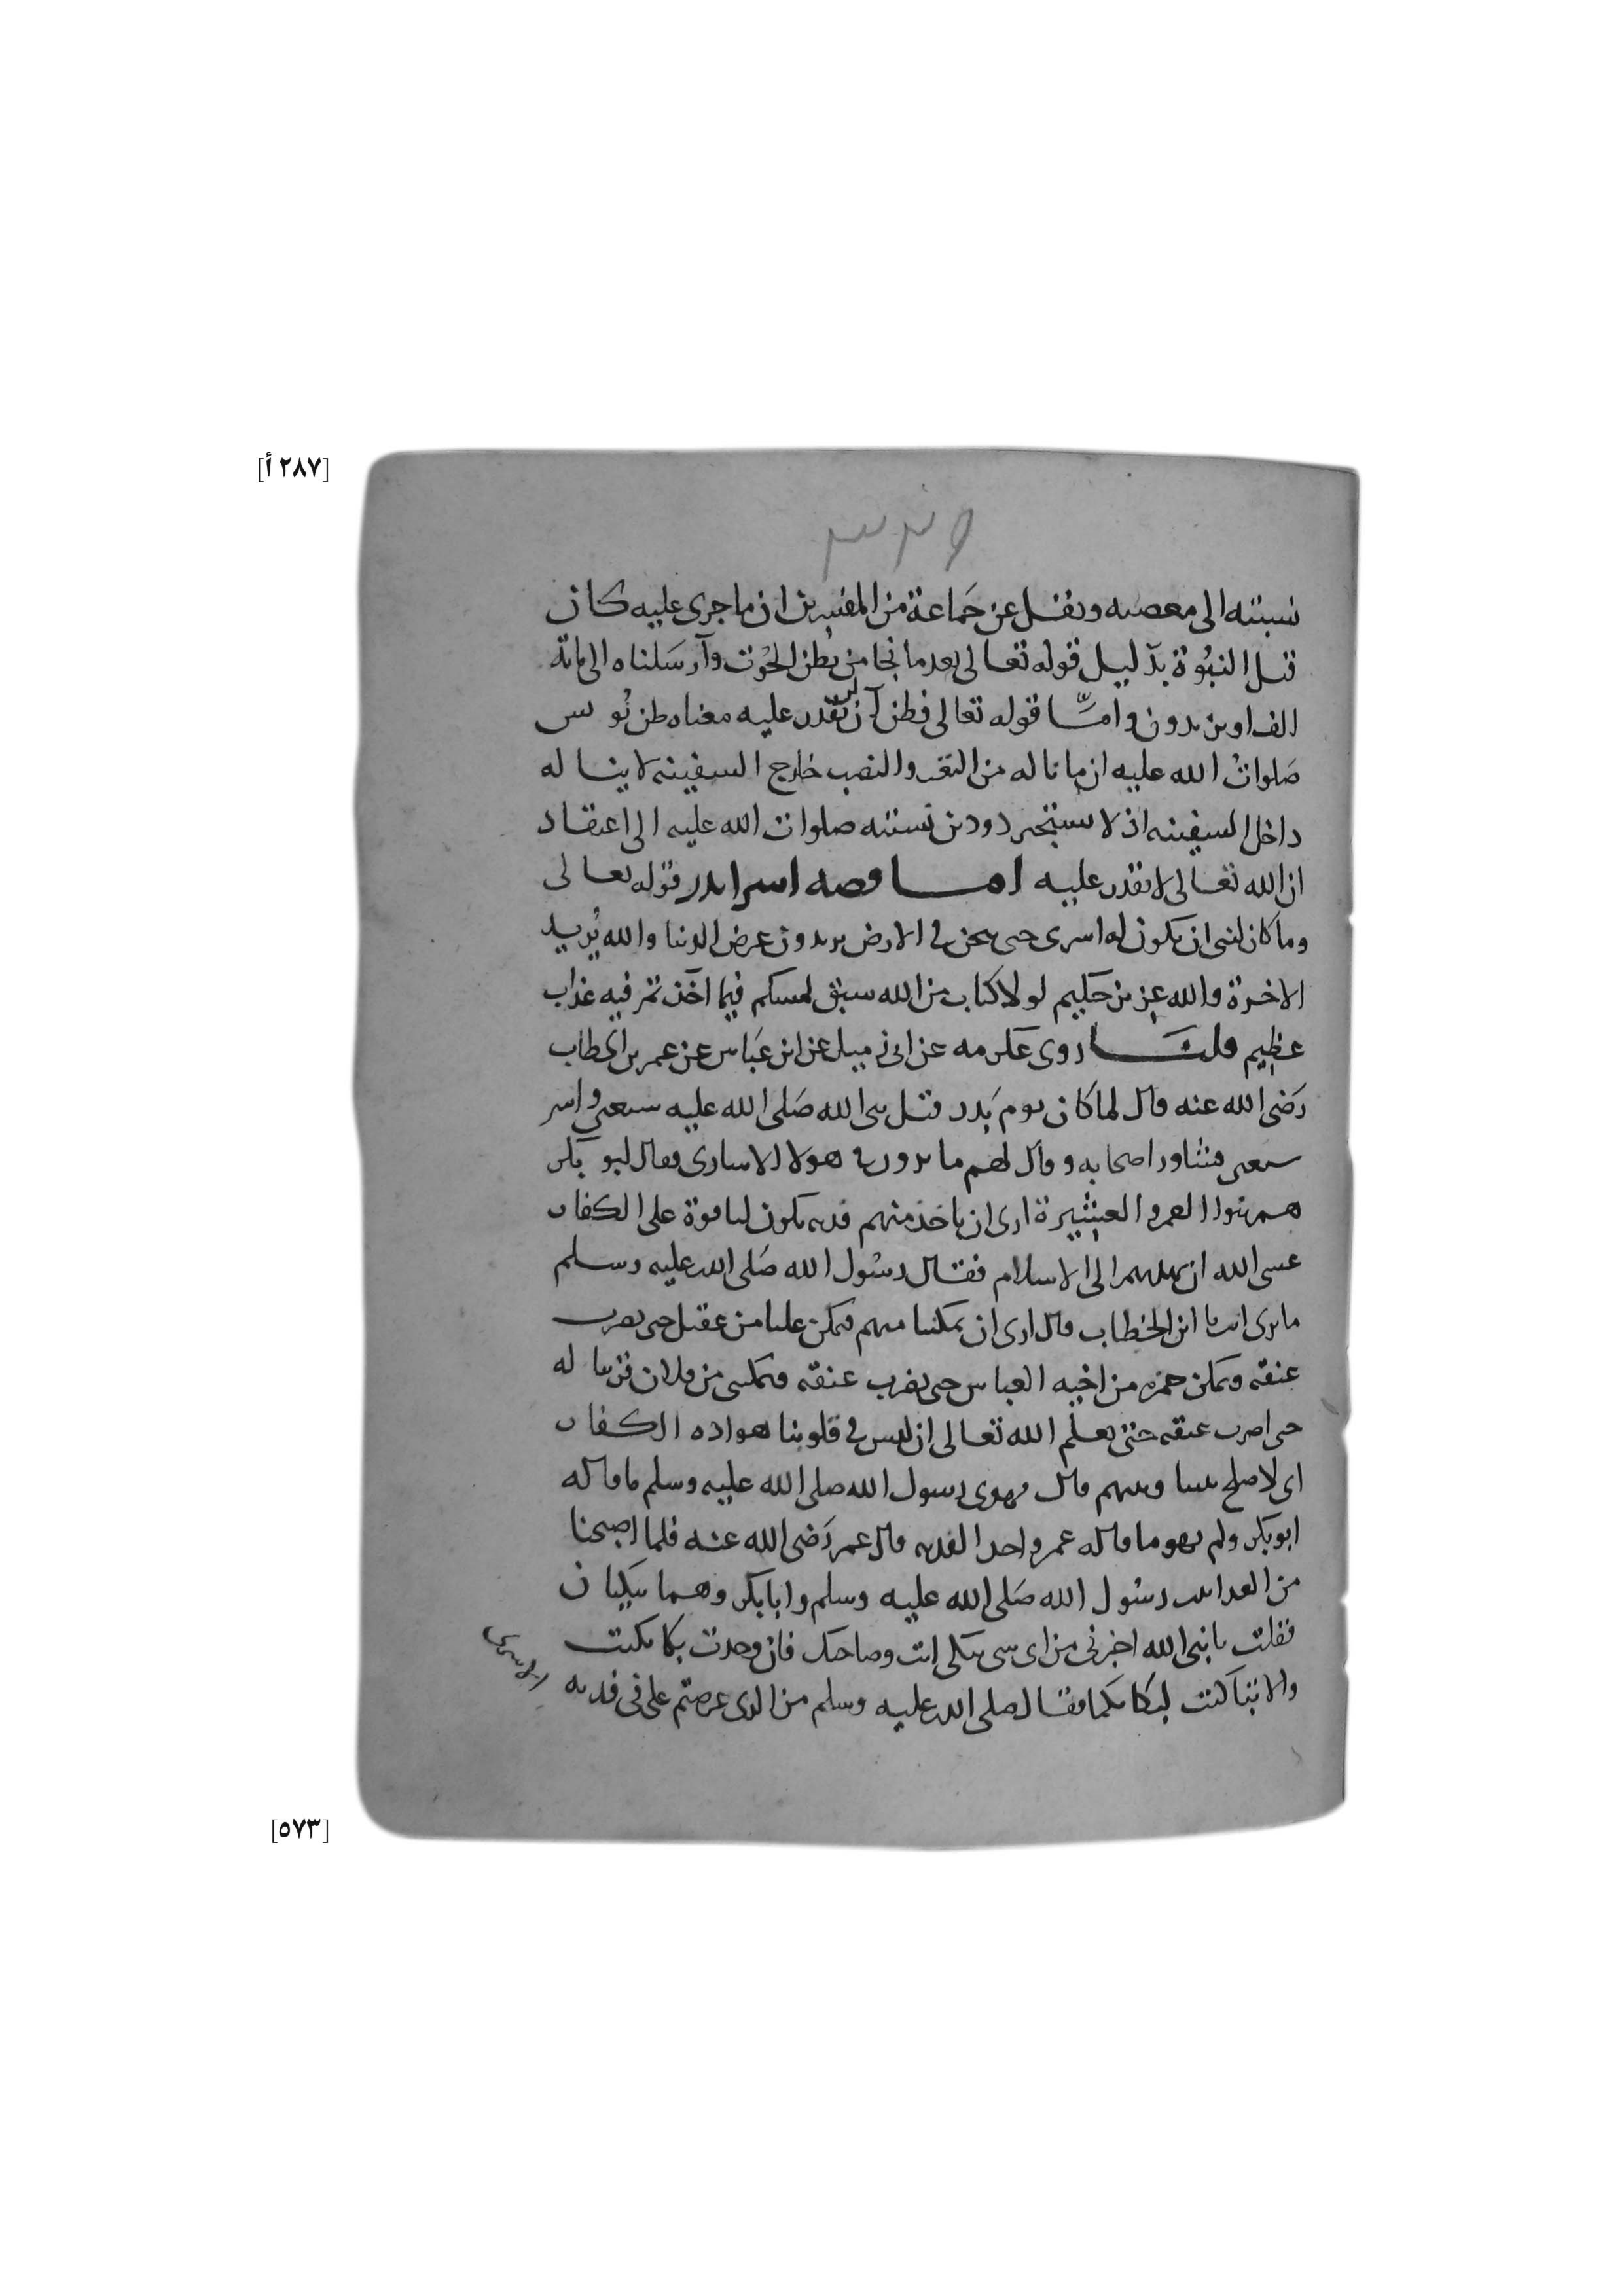 [٢٨٧ أ]
نسبته الى معصيه ونقل عن جَماعة من المفسرين ان ما جرى عليه كان
قبل النبُوة بدَليل قوله تعالى بعد ما نجا من بُطن الحُوت وآرسَلناه الى مائة
الف او يزيدون وامّا قوله تعالى فظن آن لن نقدر عليه معناه ظن يُونس
صَلواتُ الله عليه ان ما ناله من التعب والنصب خارج السفينه لا يناله
داخل السفينه اذ لا يستجير ذو دين نسبته صلوات الله عليه الى اعتقاد
ان الله تعالى لا يقدر عليه امـــا قصه اسرا بدر قوله تعالى
وما كان لنبى ان يكون له اسرى حتى يثخن فى الارض يريدون عرض الدنيا والله يُريد
الاخرة والله عزيز حَكيم لولا كتاب من الله سبق لمسكم فيما آخذتم فيه عذاب
عظيم قلنَـــا روى عكرمه عن ابى زميل عن ابن عَباس عن عمر بن الخطاب
رَضى الله عنه قال لما كان يوم بَدر قتل نبى الله صَلى الله عليه سبعين واسر
سبعين فشاور اصحابه وقال لهم ما ترون فى هولا الاسارى فقال ابو بكر
هم بنوا العم والعشيرة ارى ان ياخذ منهم فديه يكون لنا قوة على الكفار
عسى الله ان يهديهم الى الاسلام فقال رسُول الله صَلى الله عليه وسلم
ما ترى انت يا ابن الخطاب قال ارى ان تمكننا منهم فتمكن عليا من عقيل حتى يضرب
عنقه وتمكن حمزه من اخيه العباس حتى يضرب عنقه وتمكننى من فلان قريبا له
حتى اضرب عنقه حتى يعلم الله تعالى ان ليس فى قلوبنا هواده الكفار
اى لا صلح بيننا وبينهم قال فهوى رسول الله صلى الله عليه وسلم ما قاله
ابو بكر ولم يهو ما قاله عمر واخذ الفديه قال عمر رَضى الله عنه فلما اصبحنا
من الغد اتيت رسُول الله صَلى الله عليه وسلم وابا بكر وهما يبكيان
فقلت يا نبى الله اخبرنى من اى شى تبكى انت وصاحبك فان وجدت بكا بكيت
والا تباكيت لبكايكما فقال صلى الله عليه وسلم من الذى عرضتم على فى فديه
الاسرى
[٥٧٣]